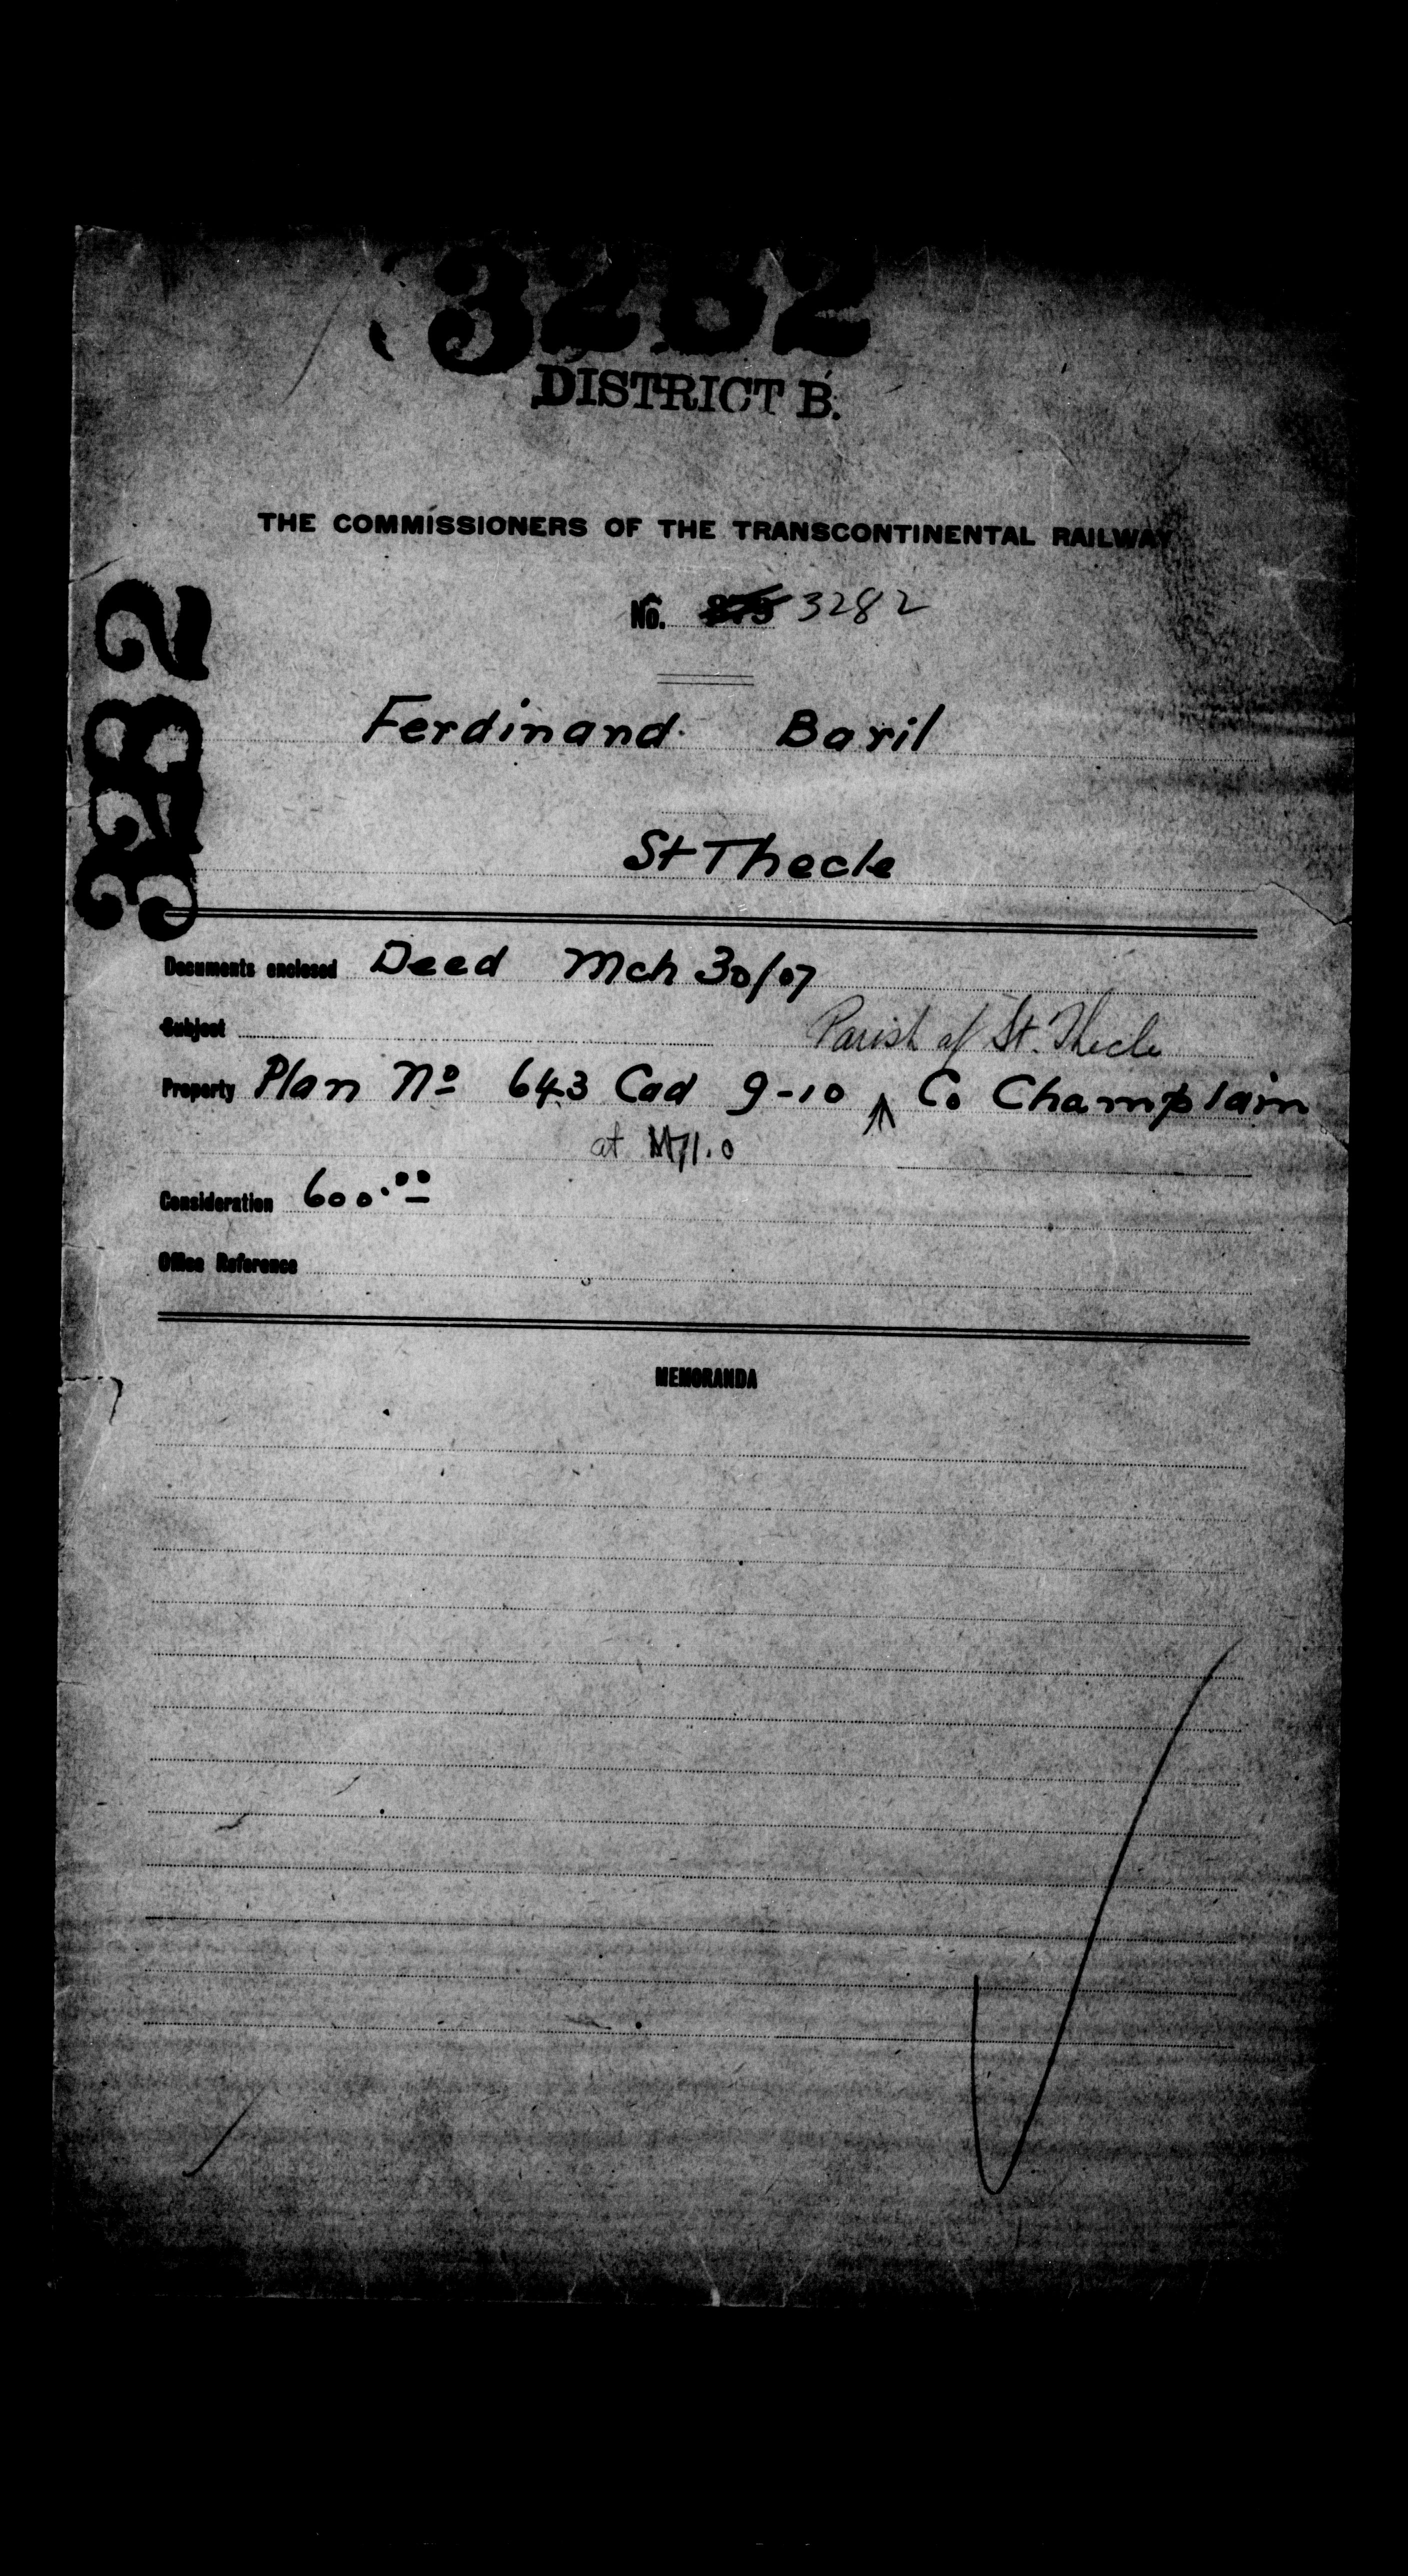 3282
DISTRICT B.
THE COMMISSIONERS OF THE TRANSCONTINENTAL RAILWAY
No. 3282
3282
Ferdinand Baril
St Thecle
Documents enclosed Deed Mch 30/07
Subject
Parish of St. Thecle
Property Plan No 643 Cad 9-10 Co Champlain
at M71.0
Consideration 600.00
Office Reference
MEMORANDA